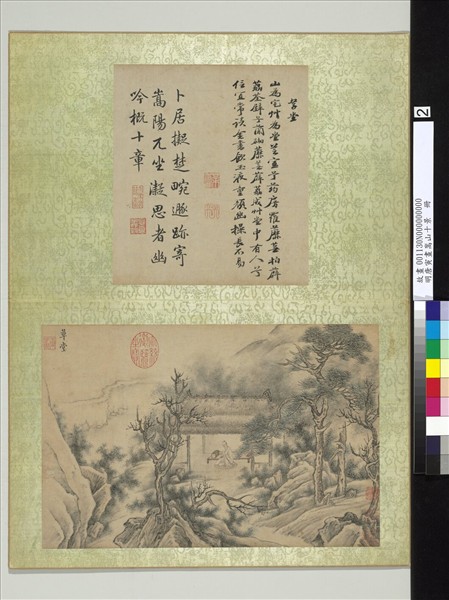 草堂
山為宅兮草為堂芝室兮藥房羅蘼蕪拍薜
荔荃壁兮蘭砌蘼蕪薜荔成草堂中有人兮
信宜常讀金書飲玉液童顏幽操長不易
卜居擬楚畹遯跡寄
嵩陽兀坐凝思者幽
吟概十章
草堂
2
故畫 001130N000000000
明唐寅畫嵩山十景 冊